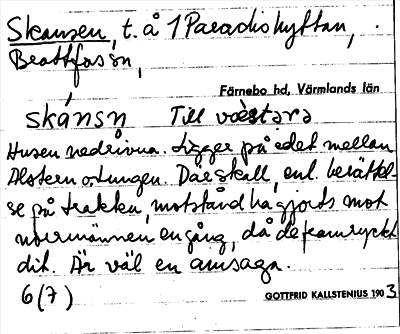 Skansen, t. å 1 Paradishyttan,
Brattfors sn,
Färnebo hd, Värmlands län
skánsn Till
Husen nedrivna. Ligger på edet mellan
Alstern o. Lungen. Där skall, enl. berättel-
se på trakten, motstånd ha gjorts mot
norrmännen en gång, då de framryckt
dit. Är väl en amsaga.
6 (7) GOTTFRID KALLSTENIUS 1903